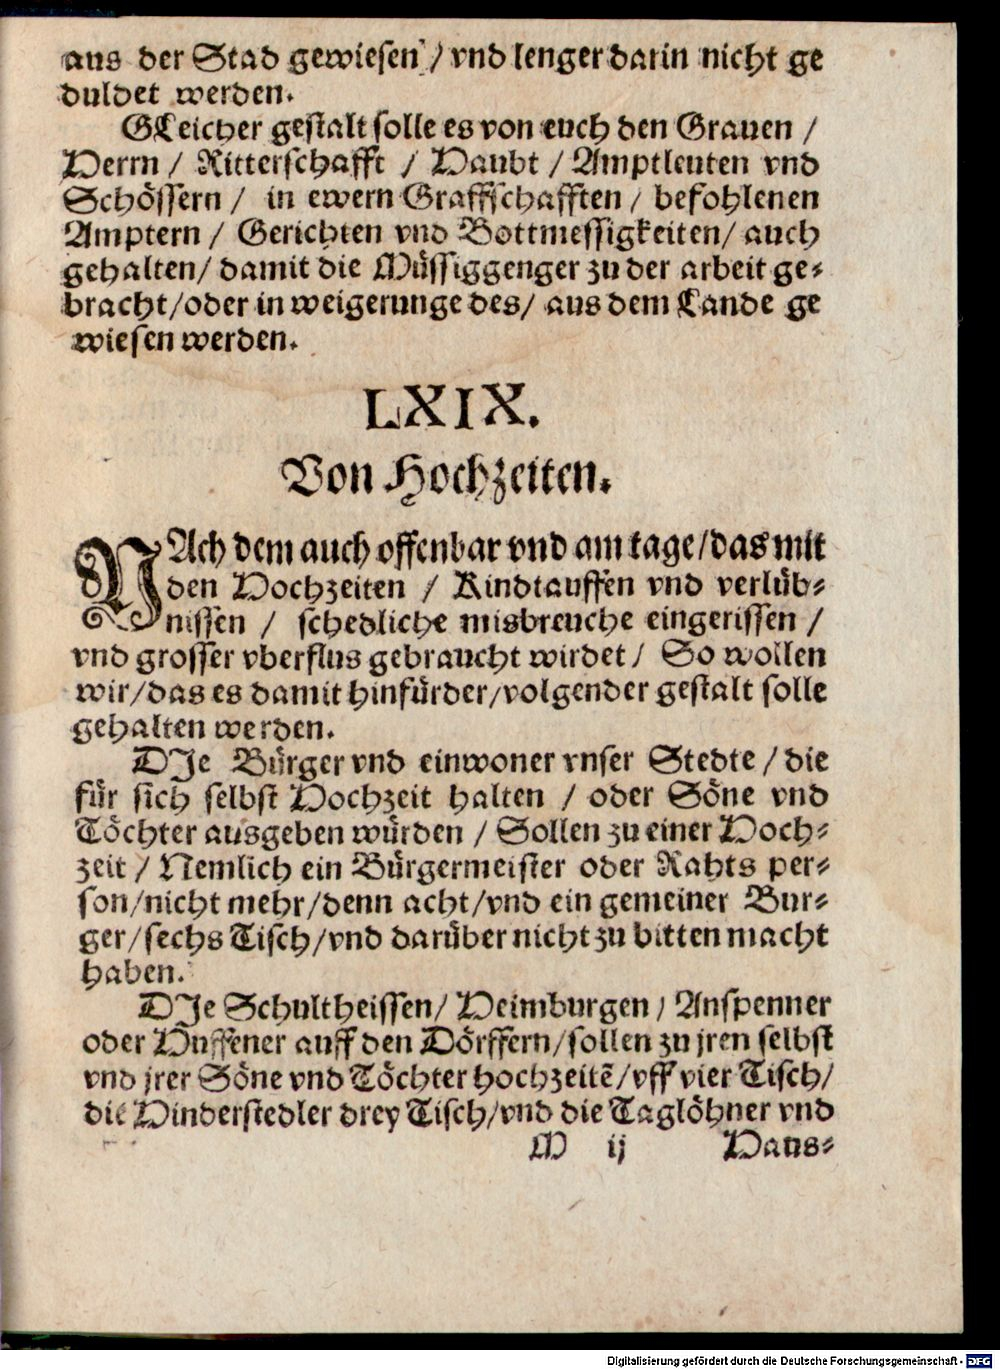 aus der Stad gewiesen / vnd lenger darin nicht ge
duldet werden.
GLeicher gestalt solle es von euch den Grauen /
Herrn / Ritterschafft / Haubt / Amptleuten vnd
Schössern / in ewern Graffschafften / befohlenen
Amptern / Gerichten vnd Bottmessigkeiten / auch
gehalten / damit die Müssiggenger zu der arbeit ge-
bracht / oder in weigerunge des / aus dem Lande ge
wiesen werden.
LXIX.
Von Hochzeiten.
NAch dem auch offenbar vnd am tage / das mit
den Hochzeiten / Kindtauffen vnd verlüb-
nissen / schedliche misbreuche eingerissen /
vnd grosser vberflus gebraucht wirdet / So wollen
wir / das es damit hinfürder / volgender gestalt solle
gehalten werden.
DIe Bürger vnd einwoner vnser Stedte / die
für sich selbst Hochzeit halten / oder Söne vnd
Töchter ausgeben würden / Sollen zu einer Hoch-
zeit / Nemlich ein Bürgermeister oder Rahts per-
son / nicht mehr / denn acht / vnd ein gemeiner Bur-
ger / sechs Tisch / vnd darüber nicht zu bitten macht
haben.
DIe Schultheissen / Heimburgen / Anspenner
oder Huffener auff den Dörffern / sollen zu jren selbst
vnd jrer Söne vnd Töchter hochzeitē / vff vier Tisch /
die Hindersiedler drey Tisch / vnd die Taglöhner vnd
M ij Haus-
Digitalisierung gefördert durch die Deutsche Forschungsgemeinschaft - DFG